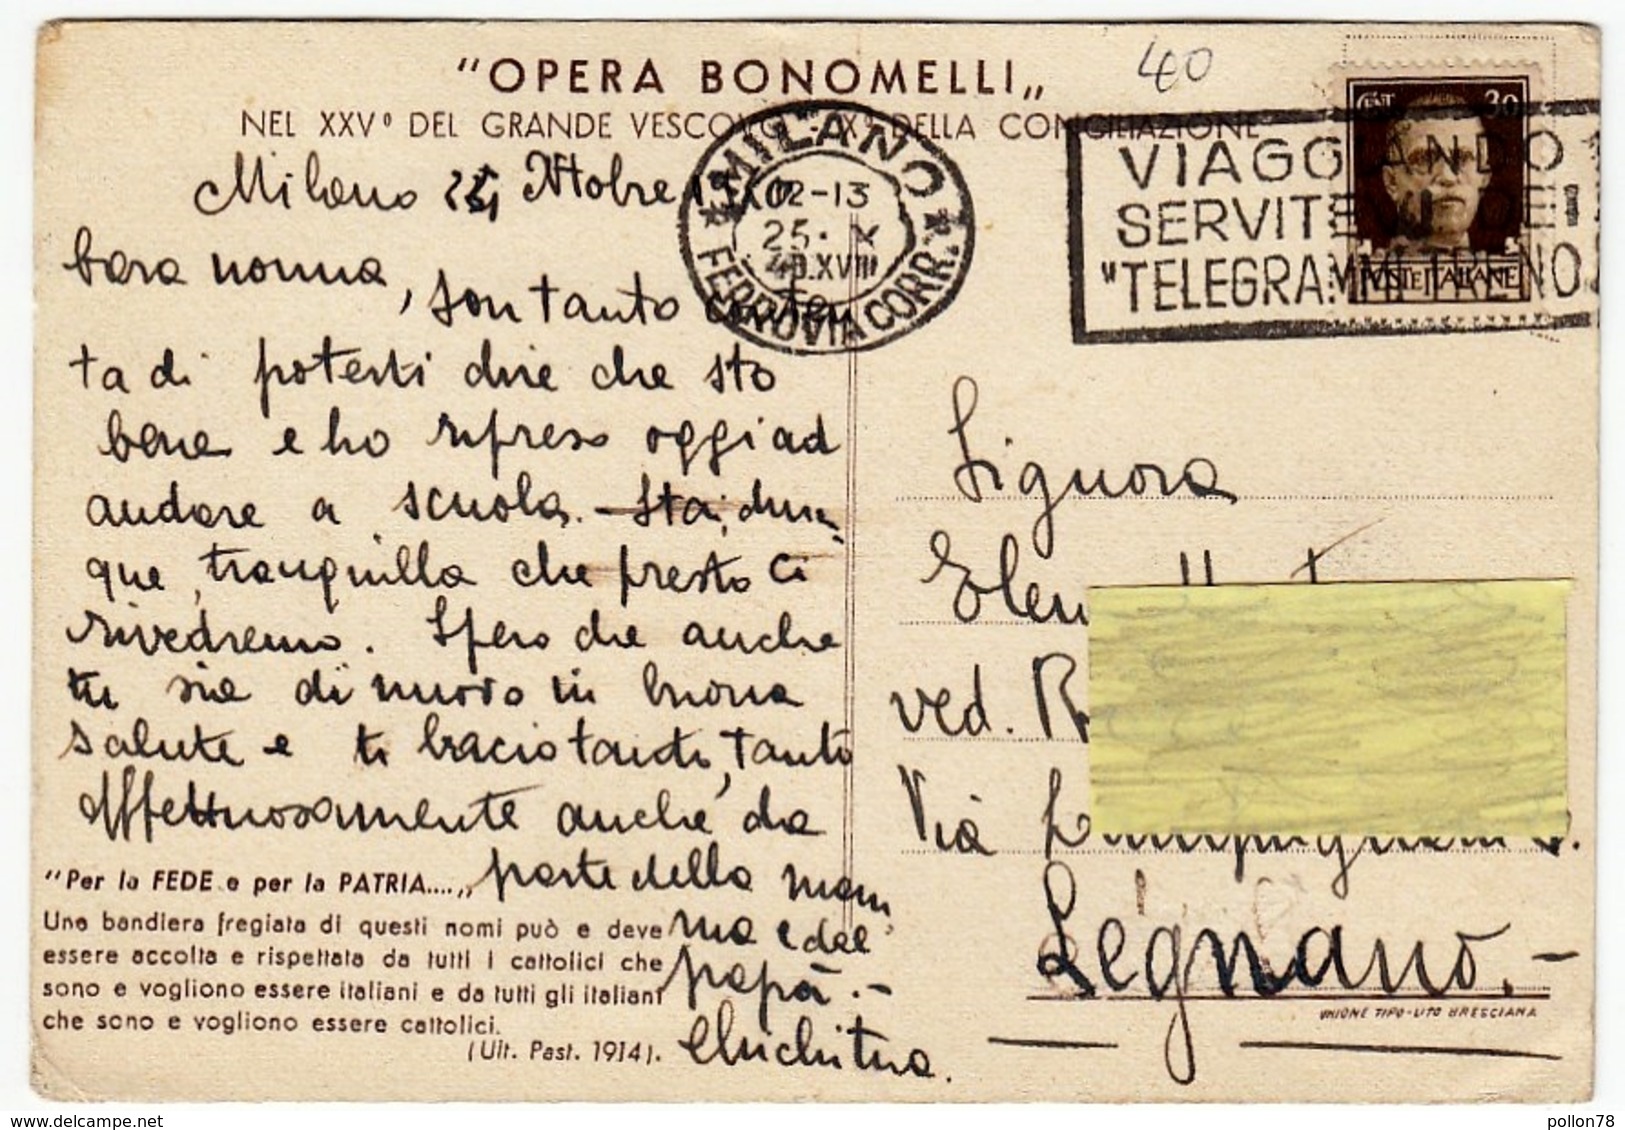 "OPERA BONOMELLI„
40
NEL XXVº DEL GRANDE VESCOVO - Xº DELLA CONCILIAZIONE
MILANO
12-13
25. X
40.XVIII
FERROVIA CORR.
CENT 30
POSTE ITALIANE
VIAGGIANDO
SERVITEVI DEI
"TELEGRAMMI TRENO
Milano 25 Ottobre
Cara nonna,
son tanto conten
ta di poterti dire che sto
bene e ho ripreso oggi ad
andare a scuola. - Stai, dun-
que, tranquilla che presto ci
rivedremo. Spero che anche
tu sia di nuovo in buona
salute e ti bacio tanto, tanto
affettuosamente anche da
parte della mam
ma e del
papà. -
Chichina.
"Per la FEDE e per la PATRIA....„
Una bandiera fregiata di questi nomi può e deve
essere accolta e rispettata da tutti i cattolici che
sono e vogliono essere italiani e da tutti gli italiani
che sono e vogliono essere cattolici.
(Ult. Past. 1914).
Signora
ved.
Via
Legnano. -
UNIONE TIPO-LITO BRESCIANA
pollon78